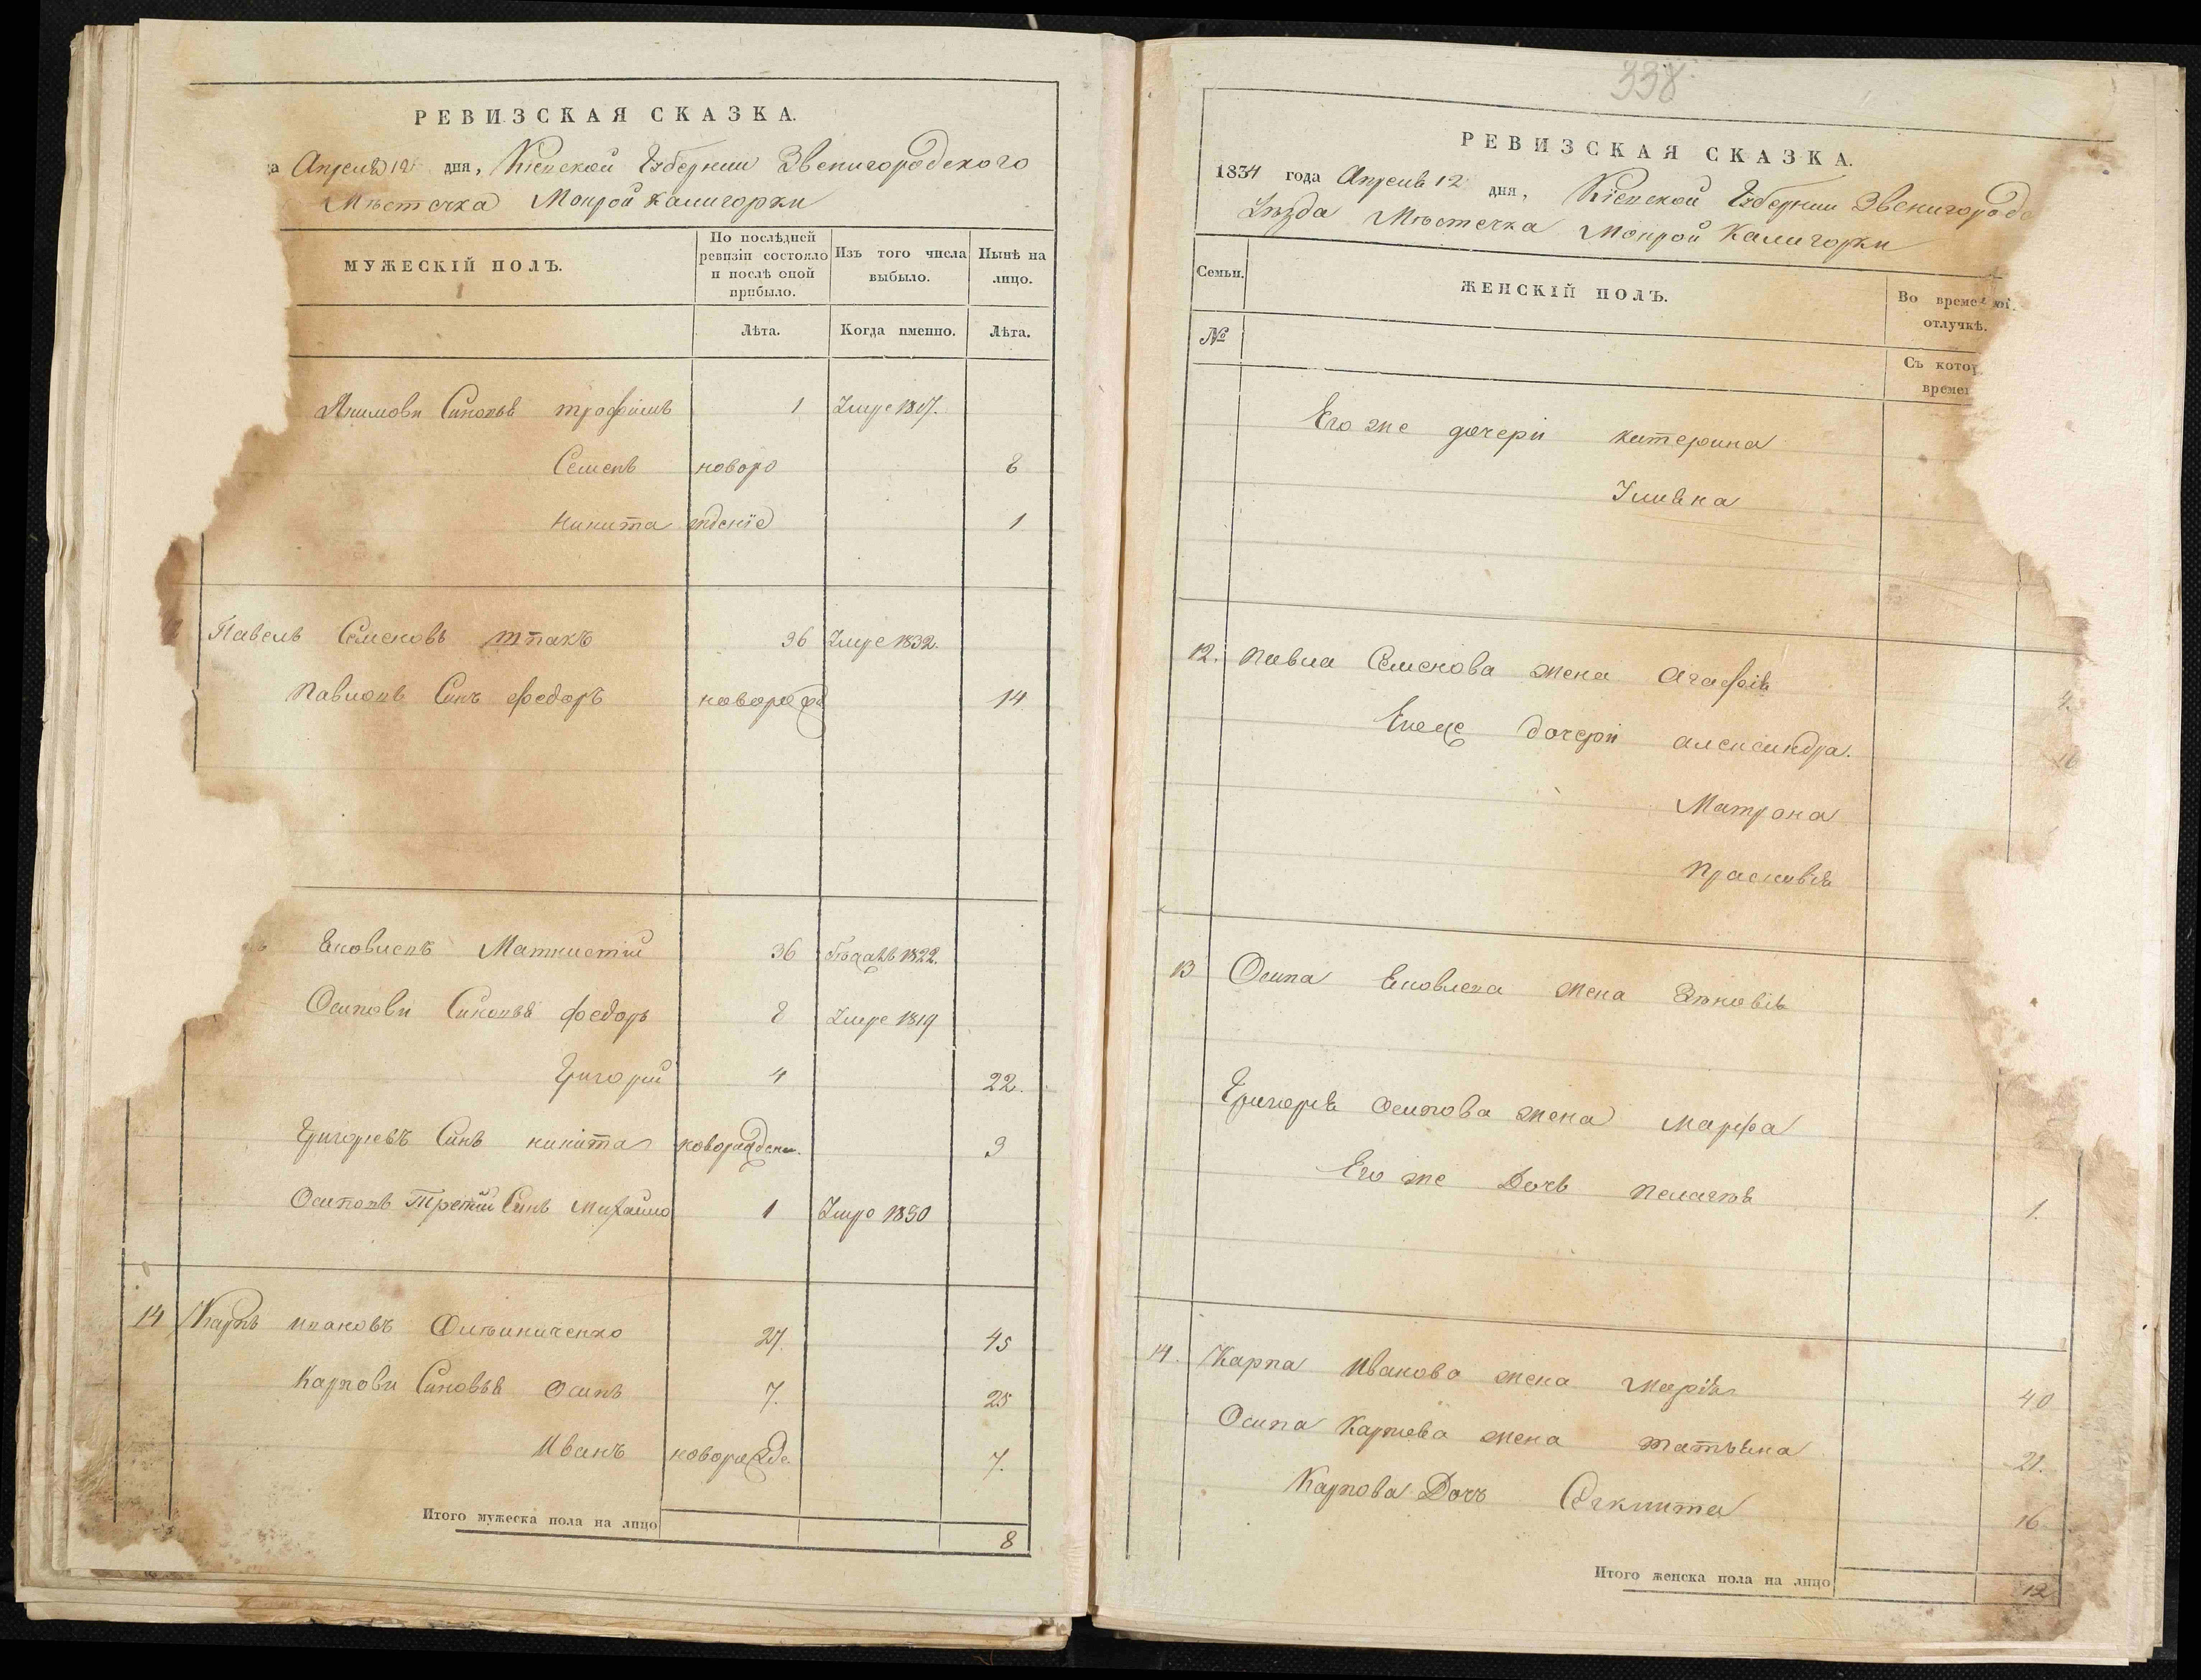 РЕВИЗСКАЯ СКАЗКА.
а Апреля 12 дня, Кіевской Губерніи Звенигородского
Мѣстечка Мокрой Калигорки
МУЖЕСКІЙ ПОЛЪ.
По послѣдней ревизіи состояло и послѣ оной прибыло.
Изъ того числа выбыло.
Нынѣ на лицо.
Лѣта.
Когда именно.
Лѣта.
Якимови Синовья трофимъ 1 Умре 1817.
Семенъ новоро 8
Никита жденіе 1
Павелъ Семеновъ ткачъ 36 Умре 1832.
Павловъ Синъ федоръ новорожд 14
Яковлевъ 36 1822.
Осипови Синовья федоръ 8 Умре 1819
Григорій 4 22.
Григорьевъ Синъ никита новорожден. 9
Осиповъ Третій Синъ Михайло 1 Умре 1830
14 Карпъ ивановъ 27. 45
Карпови Синовья осипъ 7. 25
Иванъ новорожде 7.
Итого мужеска пола на лицо 8
338
РЕВИЗСКАЯ СКАЗКА.
1834 года Апреля 12 дня, Кіевской Губерніи Звенигородс
Уѣзда Мѣстечка Мокрой Калигорки
Семьи.
ЖЕНСКІЙ ПОЛЪ.
Во времен ой отлучкѣ.
№
Съ котор
времен
Его же дочери катерина
Ульяна
12. Павла Семенова жена Агафія 4
Его же дочери александра. 16
Матрона
Прасковія
13 Осипа Яковлева жена Зѣновія
Григорья осипова жена марфа
Его же Дочь пелагѣя 1.
14. Карпа Иванова жена марія 40
Осипа Карпова жена татьяна 21.
Карпова Дочь 16
Итого женска пола на лицо 12